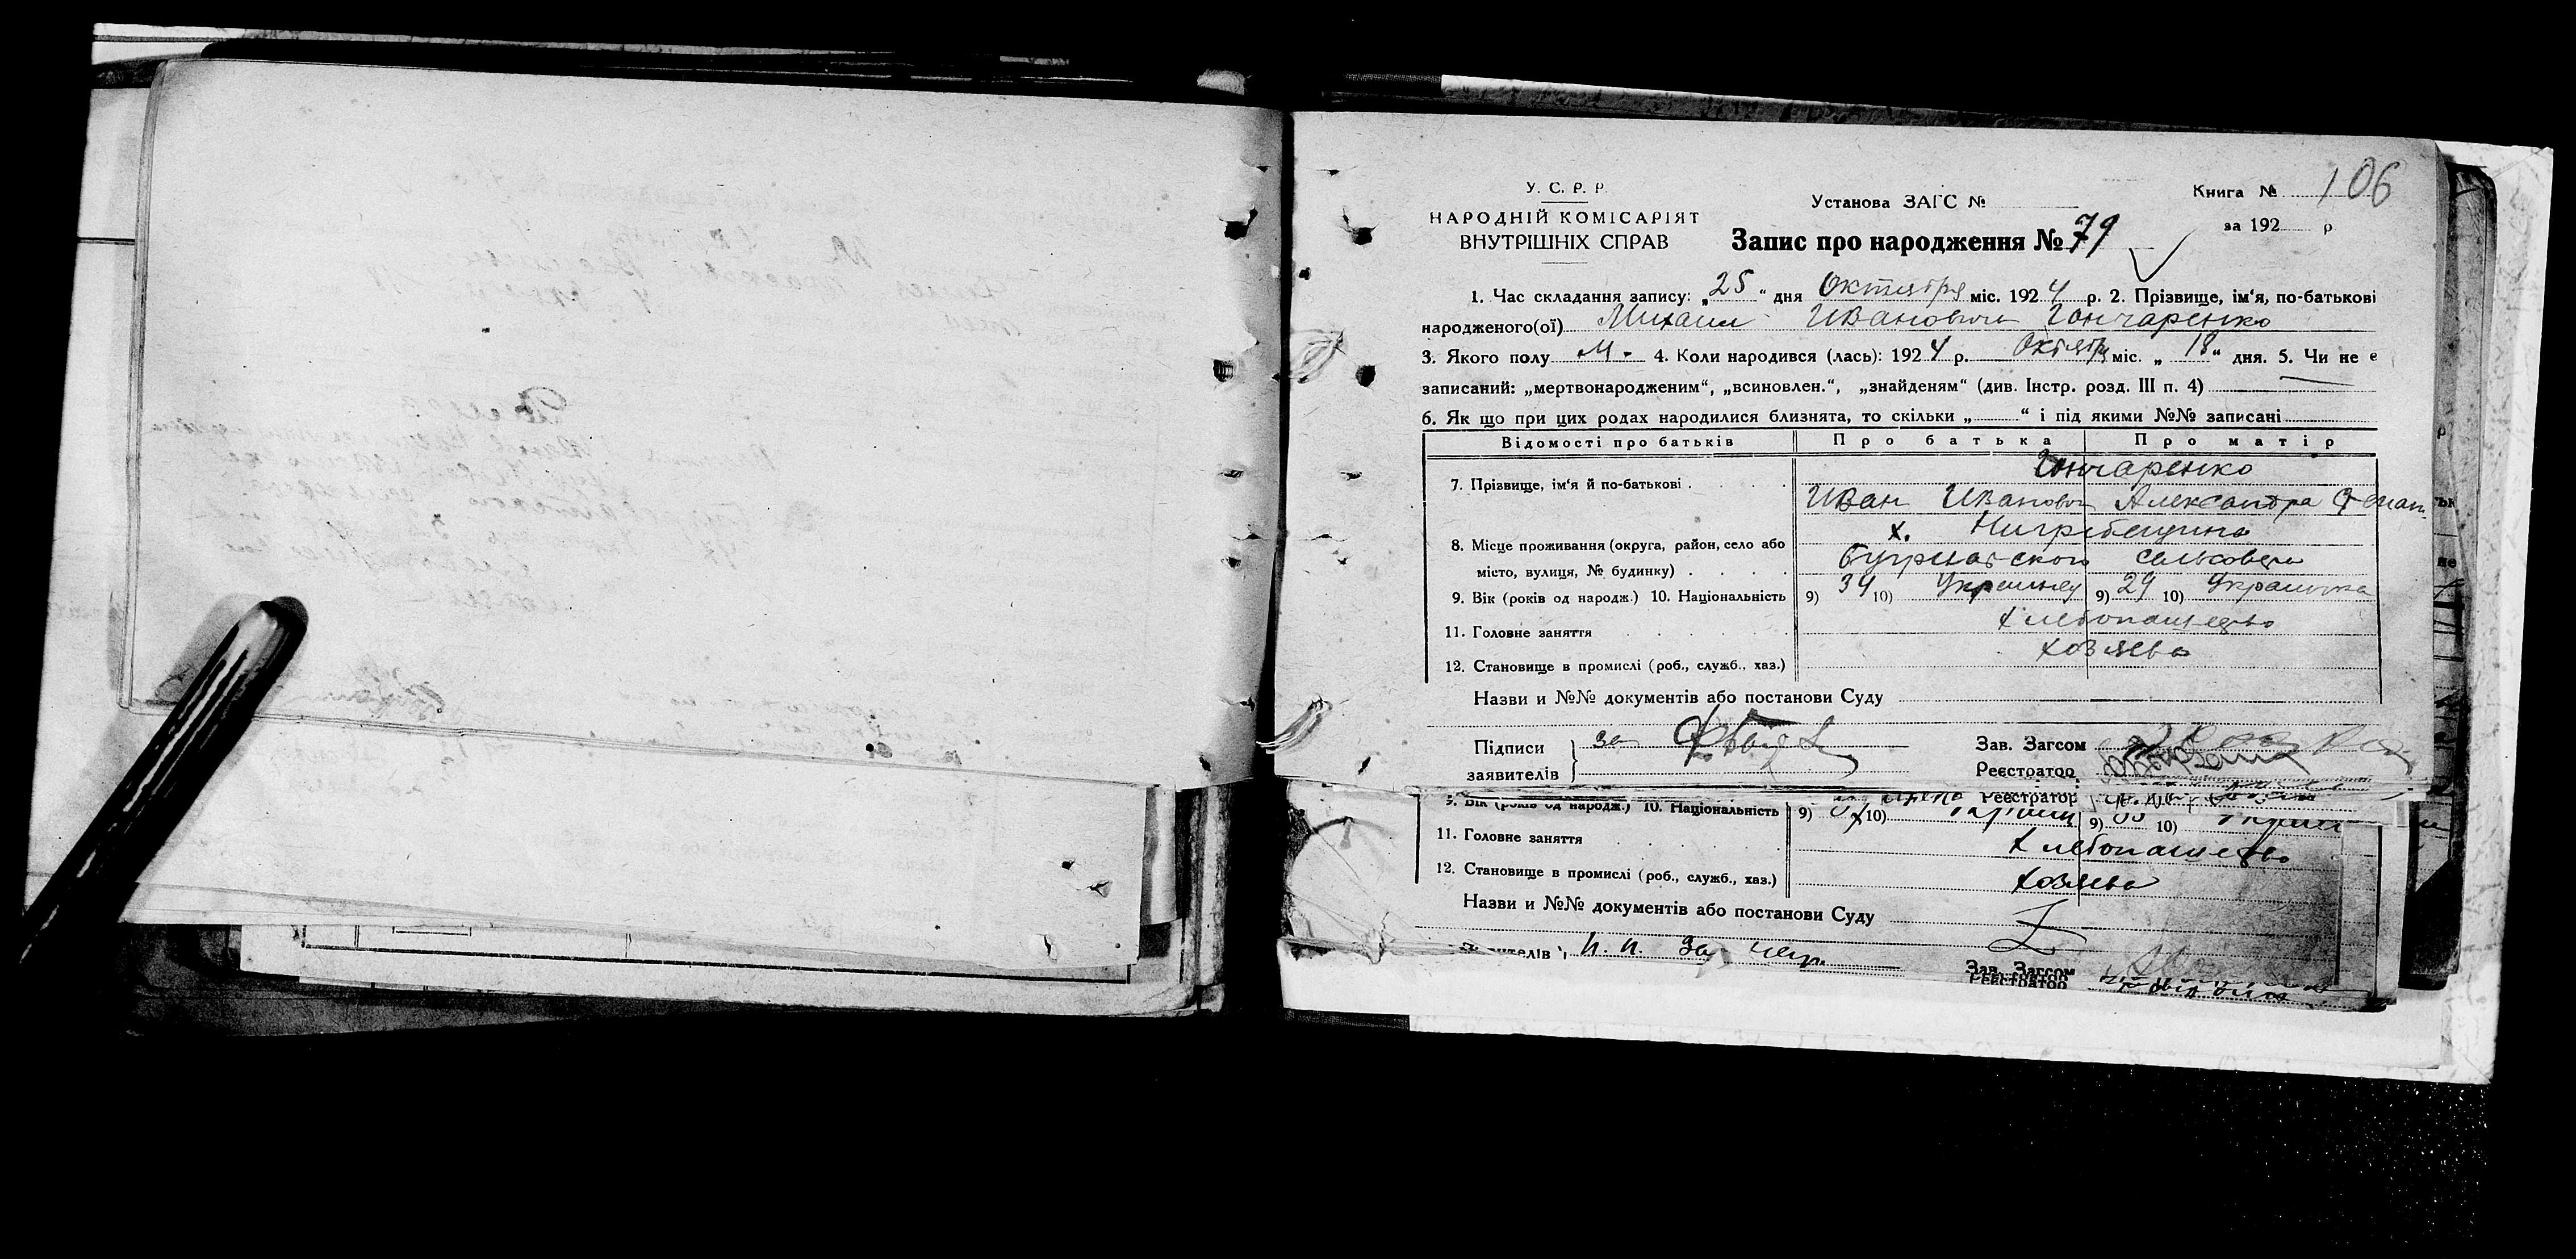 106
У. С. Р. Р.
НАРОДНІЙ КОМІСАРІЯТ
ВНУТРІШНІХ СПРАВ
Установа ЗАГС №
Книга №
за 192 р
Запис про народження № 79
1. Час складання запису: „25“ дня Октября міс. 1924 р. 2. Прізвище, ім‘я, по-батькові
народженого(ої) Михаил Иванович Гончаренко
3. Якого полу М. 4. Коли народився (лась): 1924 р. Октября міс. „18“ дня. 5. Чи не є
записаний: „мертвонародженим“, „всиновлен.“, „знайденям“ (див. Інстр. розд. III п. 4)
6. Як що при цих родах народилися близнята, то скільки „ “ і під якими №№ записані
Відомості про батьків Про батька Про матір
Гончаренко
7. Прізвище, ім‘я й по-батькові
Иван Иванович Александра
х.
8. Місце проживання (округа, район, село або
місто, вулиця, № будинку)
сельсовета
9. Вік (років од народж.) 10. Національність 9) 34 10) Украинец 9) 29 10) Украинка
11. Головне заняття хлебопашество
12. Становище в промислі (роб., служб., хаз.) хозяева
Назви и №№ документів або постанови Суду
Підписи
заявителів
за
Зав. Загсом
Реєстратор
Реєстратор
9. Вік (років од народж.) 10. Національність 9) 10) 9) 10)
11. Головне заняття хлебопашество
12. Становище в промислі (роб., служб., хаз.) хозяева
Назви и №№ документів або постанови Суду
н. н. за
Зав. Загсом
Реєстратор